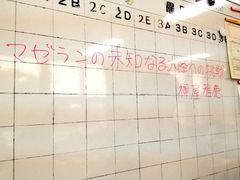 2B 2C 2D 2E 3A 3B 3C 3D
マゼランの未知なる大陸への挑戦